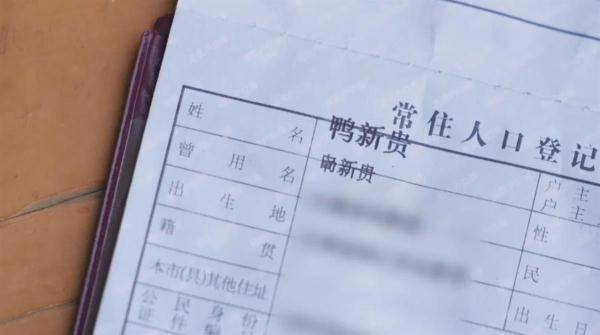 常住人口登记
姓名 鸭新贵 户主
曾用名 新贵 户主
出生地 性
籍贯 民
本市(县)其他住址 出生日
公民身份
证件编